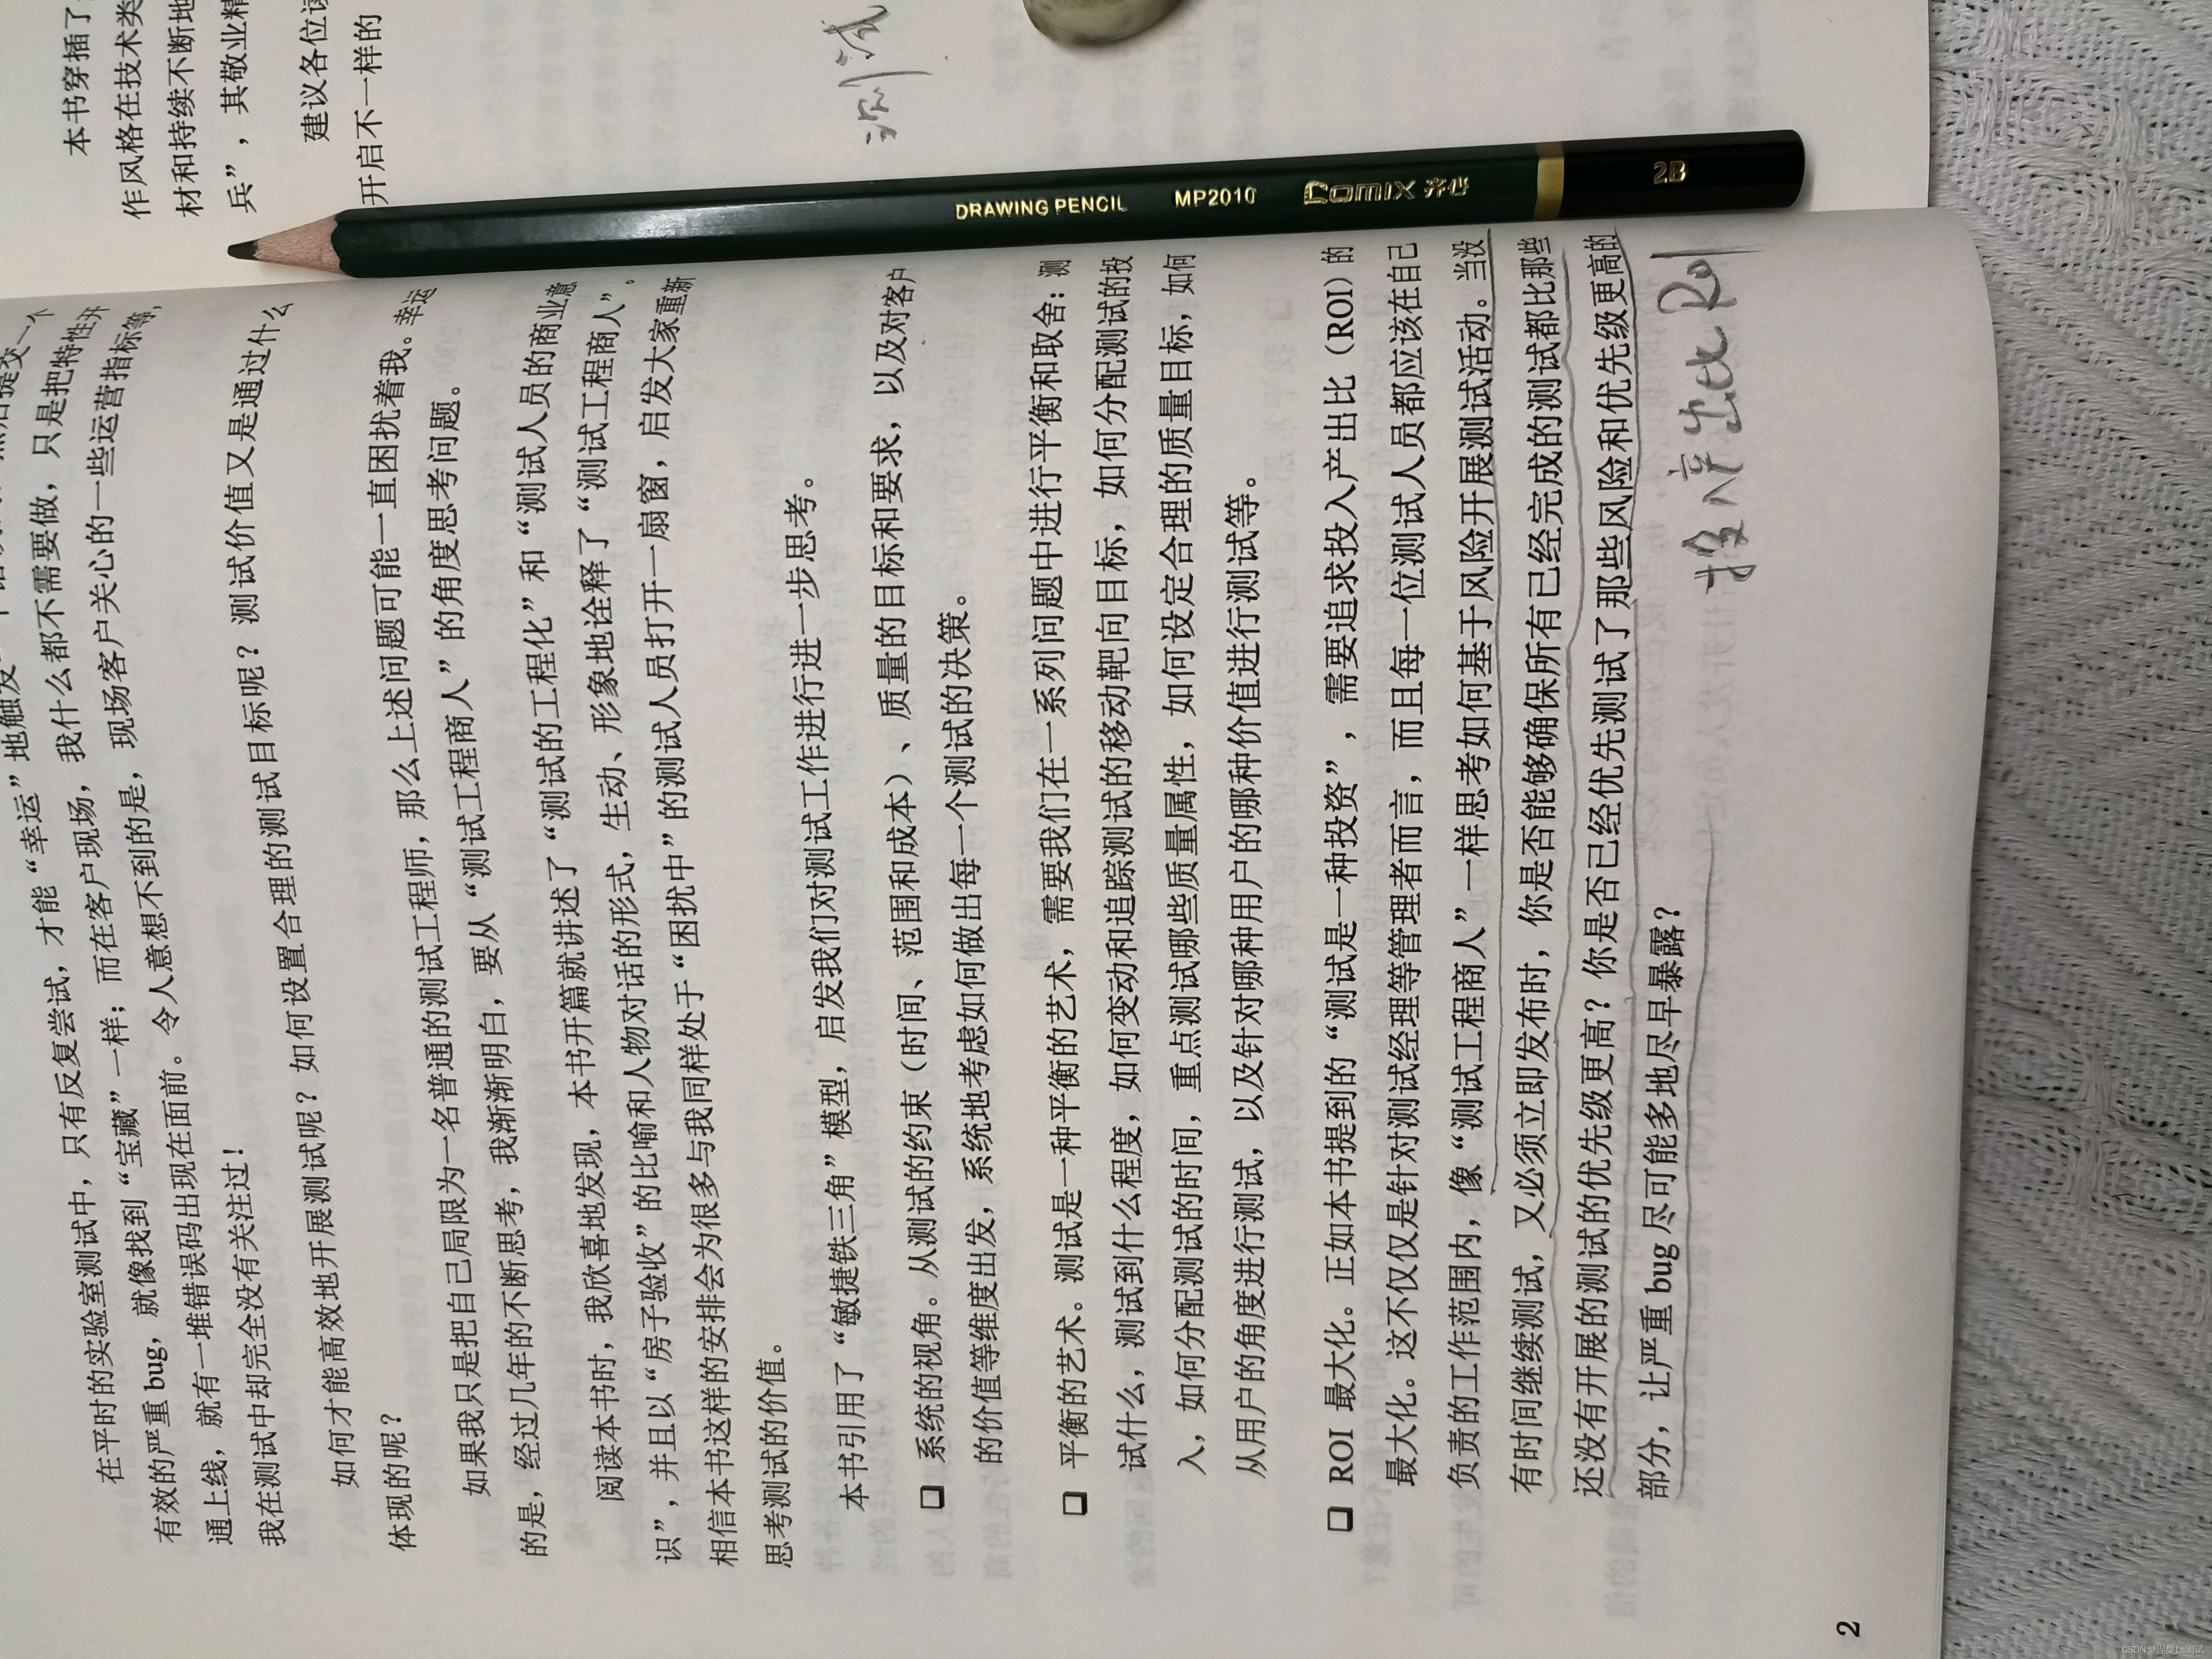 在平时的实验室测试中，只有反复尝试，才能“幸运”地触发一个
有效的严重 bug，就像找到“宝藏”一样；而在客户现场，我什么都不需要做，只是把特性开
通上线，就有一堆错误码出现在面前。令人意想不到的是，现场客户关心的一些运营指标等，
我在测试中却完全没有关注过！
如何才能高效地开展测试呢？如何设置合理的测试目标呢？测试价值又是通过什么
体现的呢？
如果我只是把自己局限为一名普通的测试工程师，那么上述问题可能一直困扰着我。幸运
的是，经过几年的不断思考，我渐渐明白，要从“测试工程商人”的角度思考问题。
阅读本书时，我欣喜地发现，本书开篇就讲述了“测试的工程化”和“测试人员的商业意
识”，并且以“房子验收”的比喻和人物对话的形式，生动、形象地诠释了“测试工程商人”。
相信本书这样的安排会为很多与我同样处于“困扰中”的测试人员打开一扇窗，启发大家重新
思考测试的价值。
本书引用了“敏捷铁三角”模型，启发我们对测试工作进行进一步思考。
❑ 系统的视角。从测试的约束（时间、范围和成本）、质量的目标和要求，以及对客户
的价值等维度出发，系统地考虑如何做出每一个测试的决策。
❑ 平衡的艺术。测试是一种平衡的艺术，需要我们在一系列问题中进行平衡和取舍：测
试什么，测试到什么程度，如何变动和追踪测试的移动靶向目标，如何分配测试的投
入，如何分配测试的时间，重点测试哪些质量属性，如何设定合理的质量目标，如何
从用户的角度进行测试，以及针对哪种用户的哪种价值进行测试等。
❑ ROI 最大化。正如本书提到的“测试是一种投资”，需要追求投入产出比（ROI）的
最大化。这不仅仅是针对测试经理等管理者而言，而且每一位测试人员都应该在自己
负责的工作范围内，像“测试工程商人”一样思考如何基于风险开展测试活动。当没
有时间继续测试，又必须立即发布时，你是否能够确保所有已经完成的测试都比那些
还没有开展的测试的优先级更高？你是否已经优先测试了那些风险和优先级更高的
部分，让严重 bug 尽可能多地尽早暴露？
投入产出比 ROI
2
本书穿插了
作风格在技术类
材和持续不断地
兵”，其敬业精
建议各位读
开启不一样的
测试
DRAWING PENCIL MP2010 Comix 齐心 2B
CSDN @涅槃Ls测试